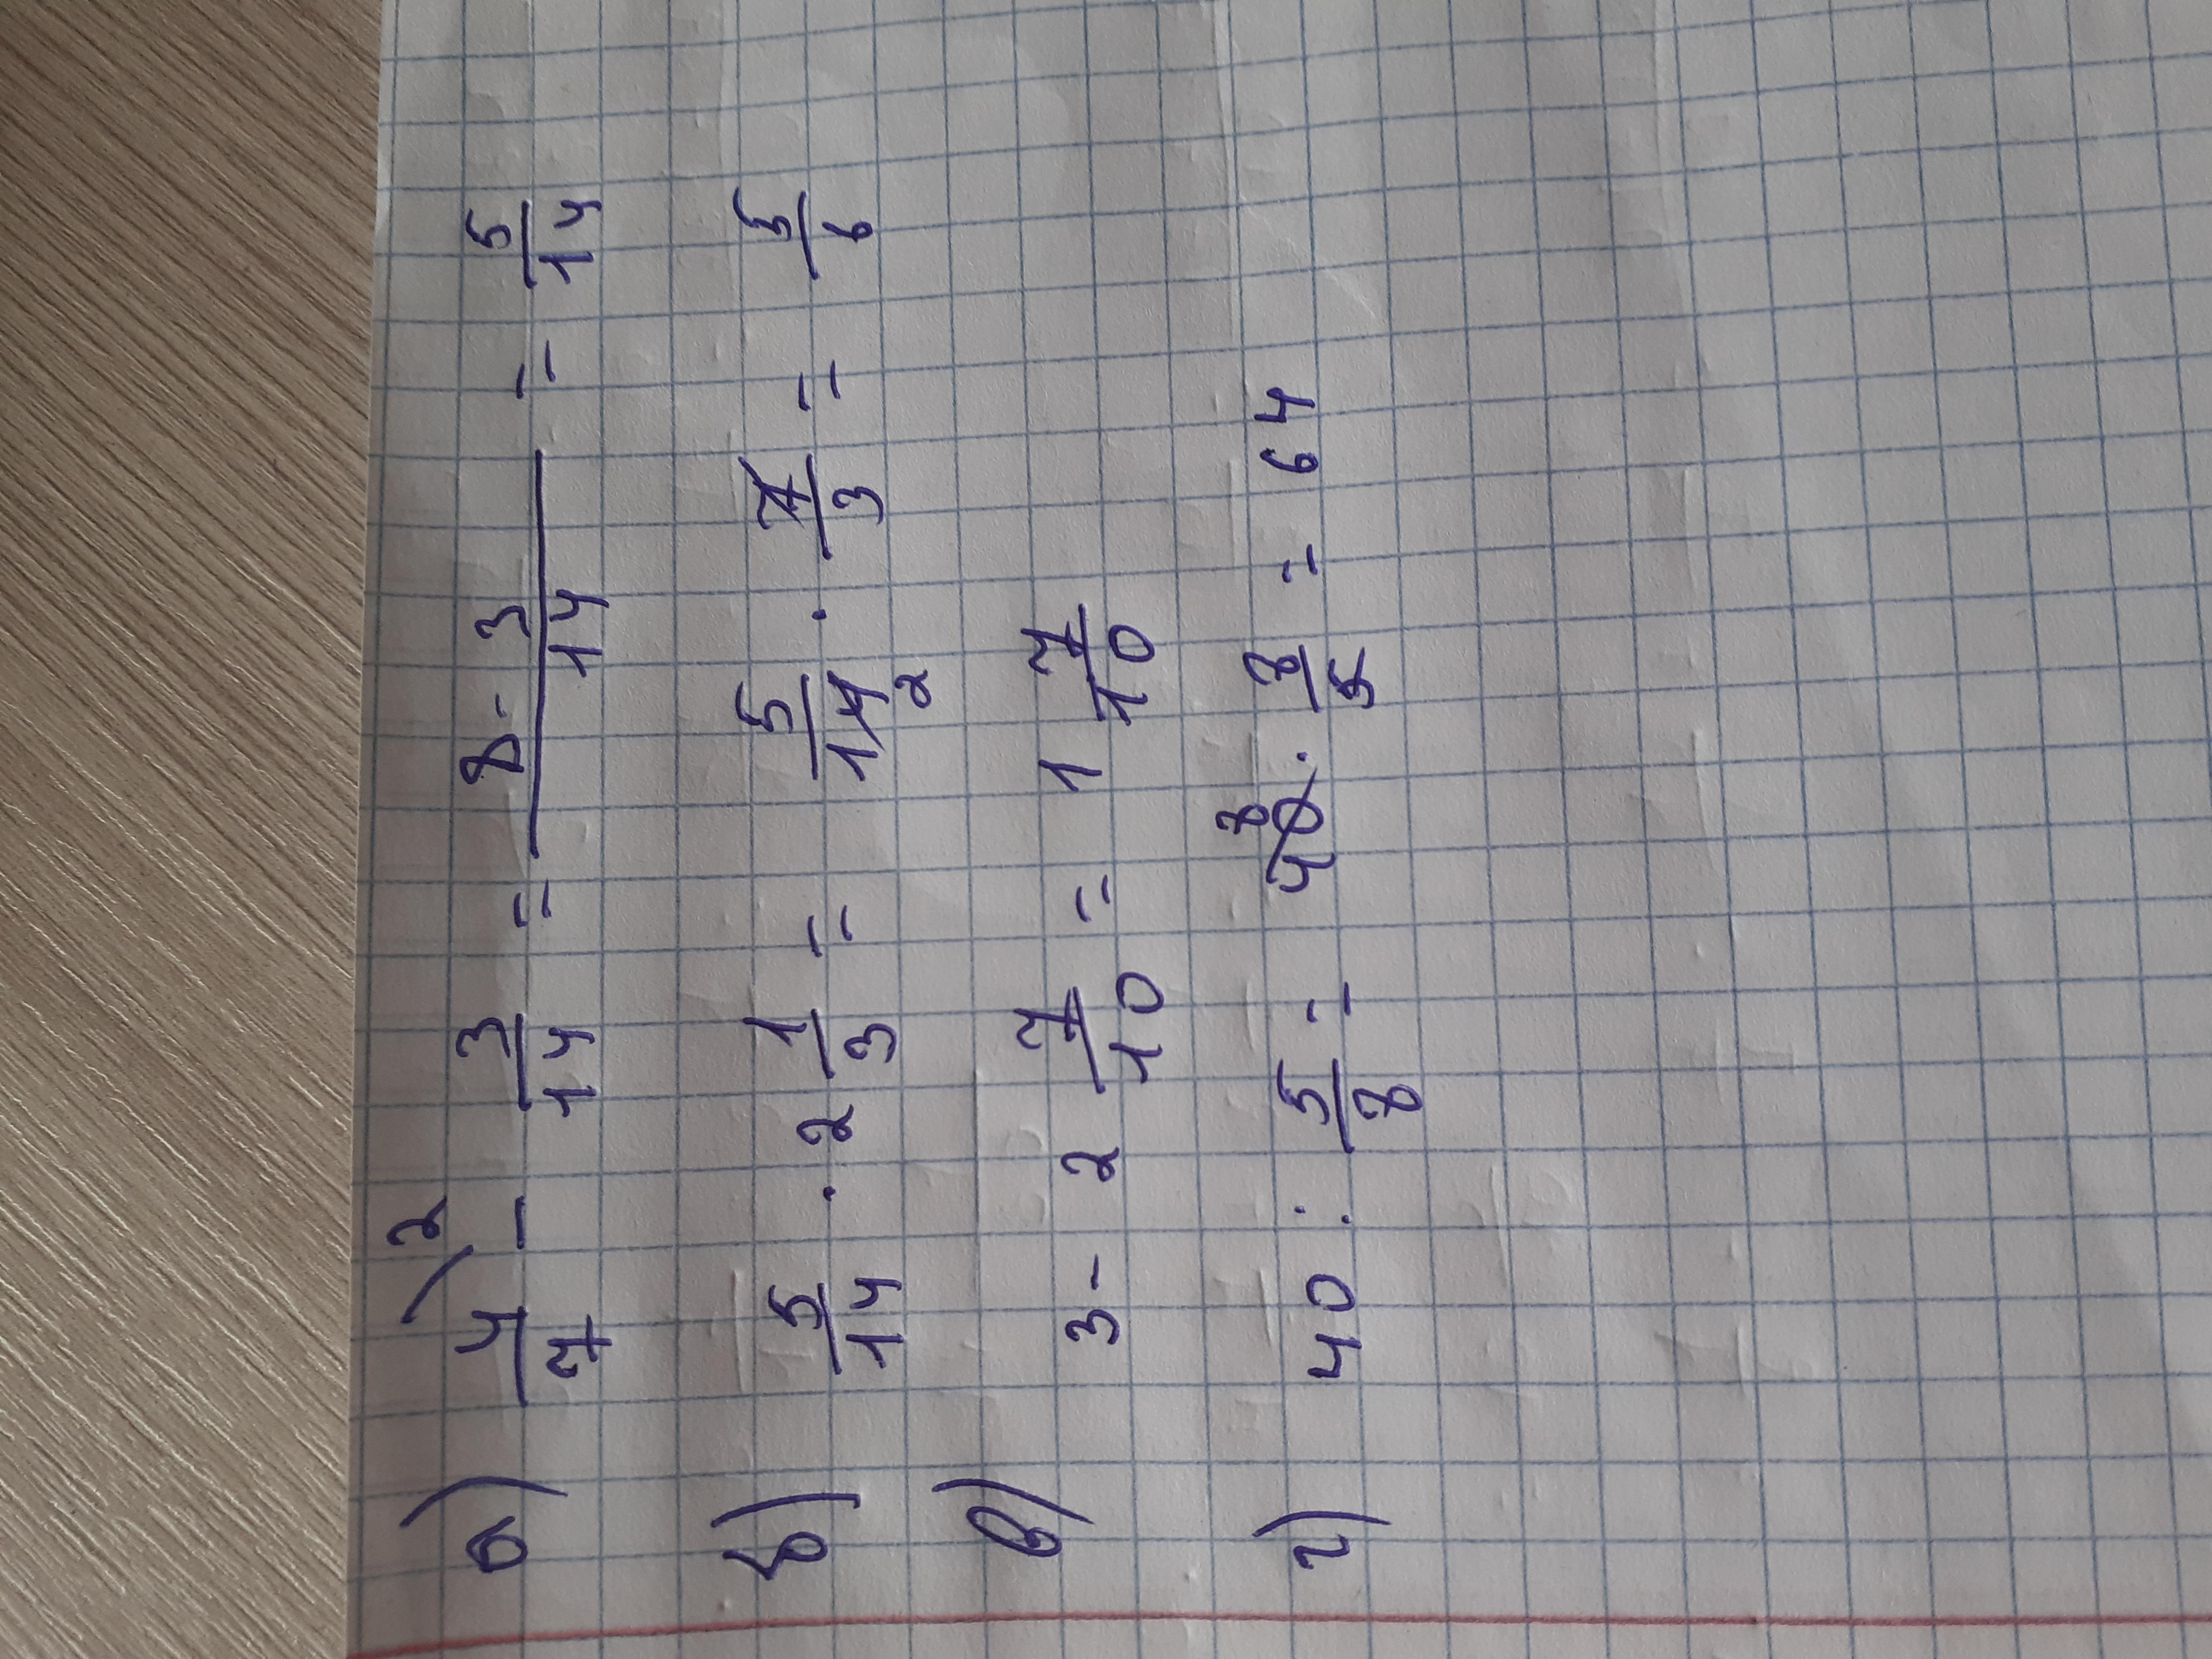 а) 4/7 ⁾² - 3/14 = 8-3/14 = 5/14
б) 5/14 · 2 1/3 = 5/14 2 · 7/3 = 5/6
в) 3 - 2 7/10 = 1 7/10
г) 40 : 5/8 = 40 8 · 8/5 = 64